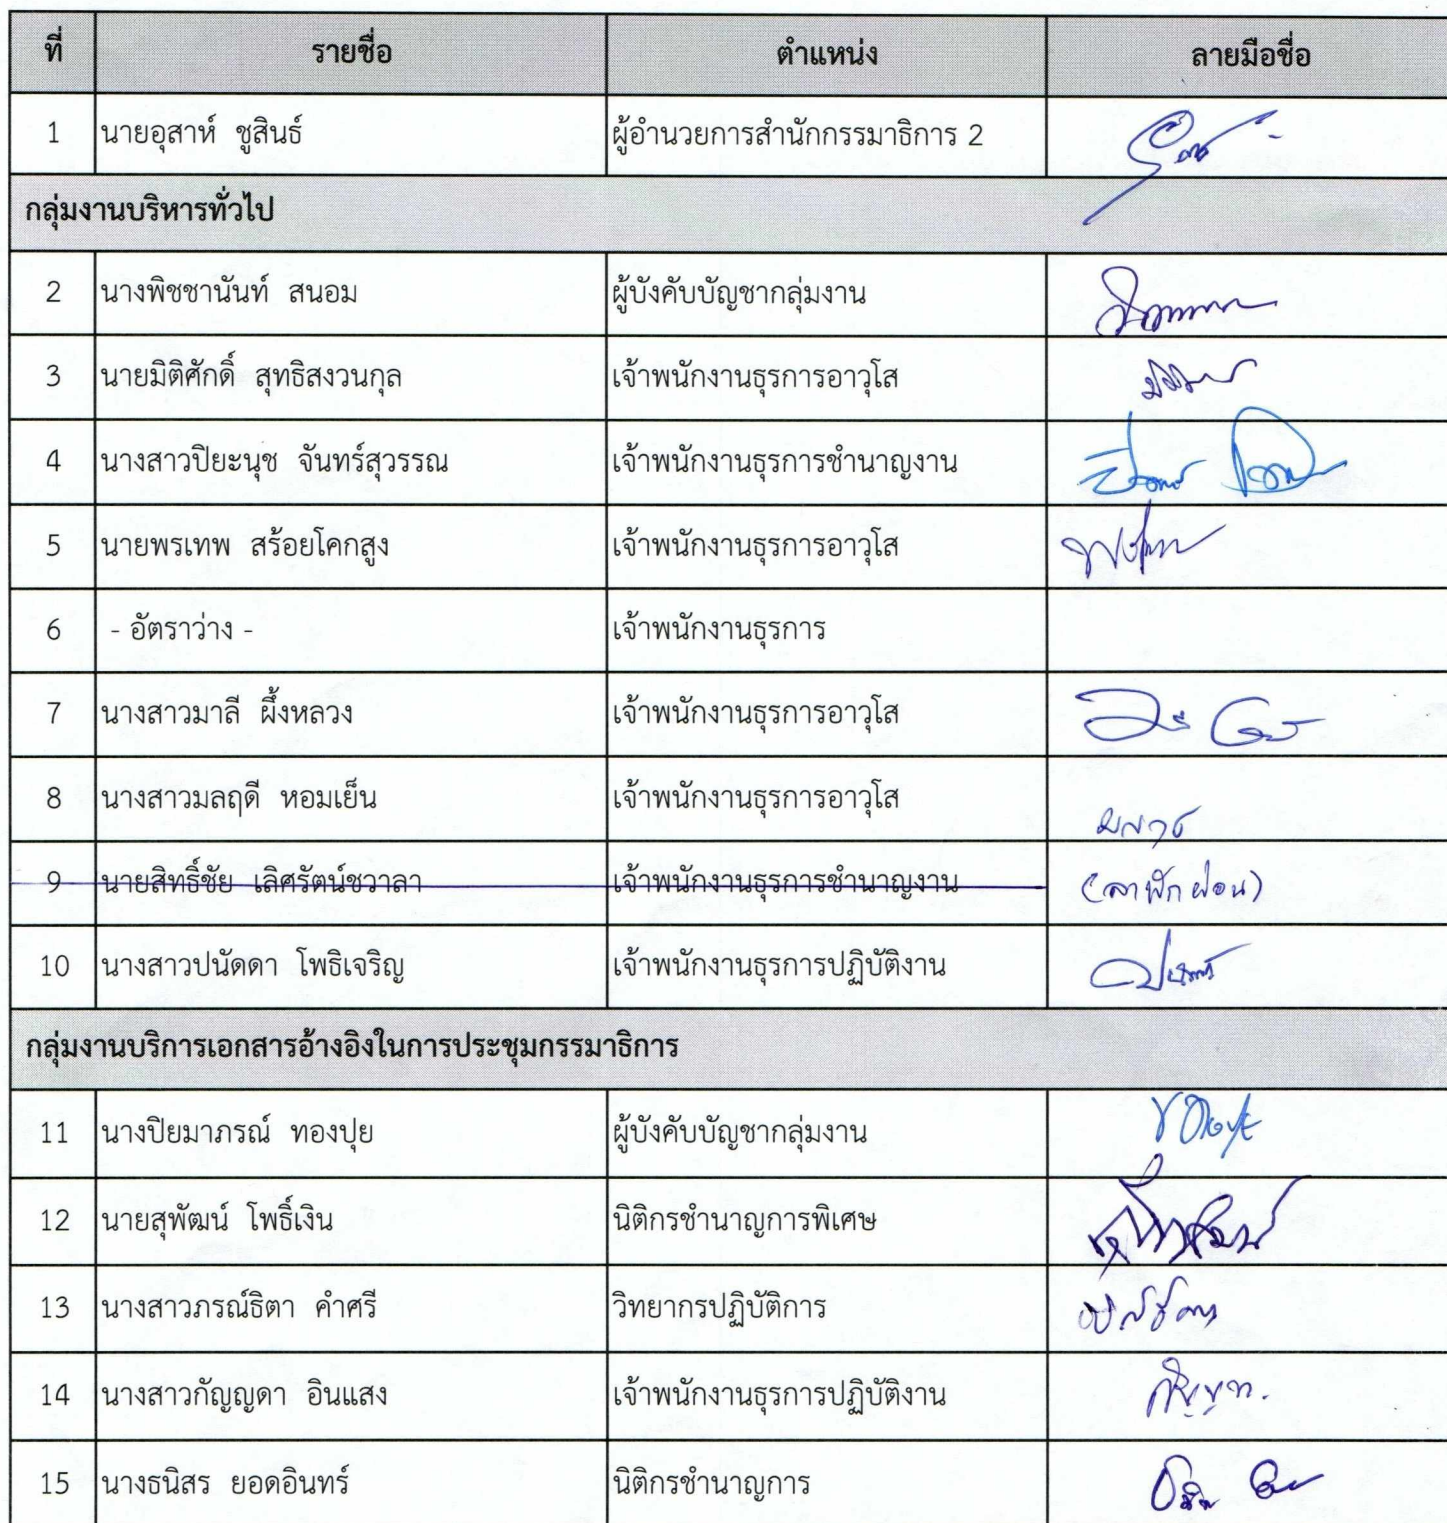 ที่ รายชื่อ ตำแหน่ง ลายมือชื่อ
1 นายอุสาห์ ชูสินธ์ ผู้อำนวยการสำนักกรรมาธิการ 2
กลุ่มงานบริหารทั่วไป
2 นางพิชชานันท์ สนอม ผู้บังคับบัญชากลุ่มงาน
3 นายมิติศักดิ์ สุทธิสงวนกุล เจ้าพนักงานธุรการอาวุโส
4 นางสาวปิยะนุช จันทร์สุวรรณ เจ้าพนักงานธุรการชำนาญงาน
5 นายพรเทพ สร้อยโคกสูง เจ้าพนักงานธุรการอาวุโส
6 - อัตราว่าง - เจ้าพนักงานธุรการ
7 นางสาวมาลี ผึ้งหลวง เจ้าพนักงานธุรการอาวุโส
8 นางสาวมลฤดี หอมเย็น เจ้าพนักงานธุรการอาวุโส
9 นายสิทธิ์ชัย เลิศรัตน์ชวาลา เจ้าพนักงานธุรการชำนาญงาน (ลาพักผ่อน)
10 นางสาวปนัดดา โพธิเจริญ เจ้าพนักงานธุรการปฏิบัติงาน
กลุ่มงานบริการเอกสารอ้างอิงในการประชุมกรรมาธิการ
11 นางปิยมาภรณ์ ทองปุย ผู้บังคับบัญชากลุ่มงาน
12 นายสุพัฒน์ โพธิ์เงิน นิติกรชำนาญการพิเศษ
13 นางสาวภรณ์ธิตา คำศรี วิทยากรปฏิบัติการ
14 นางสาวกัญญดา อินแสง เจ้าพนักงานธุรการปฏิบัติงาน
15 นางธนิสร ยอดอินทร์ นิติกรชำนาญการ